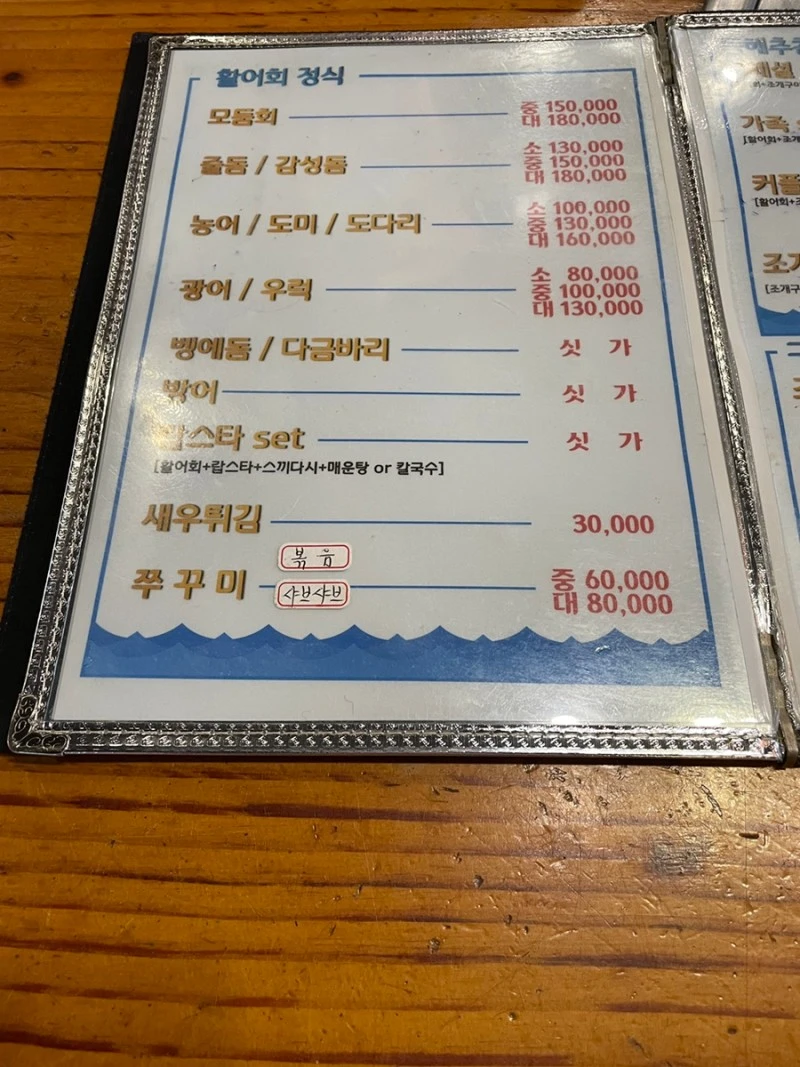 활어회 정식
모둠회 중 150,000
대 180,000
줄돔 / 감성돔 소 130,000
중 150,000
대 180,000
농어 / 도미 / 도다리 소 100,000
중 130,000
대 160,000
광어 / 우럭 소 80,000
중 100,000
대 130,000
벵에돔 / 다금바리 싯 가
방어 싯 가
랍스타 set 싯 가
[활어회+랍스타+스끼다시+매운탕 or 칼국수]
새우튀김 30,000
볶음
쭈꾸미 샤브샤브 중 60,000
대 80,000
가족
커플